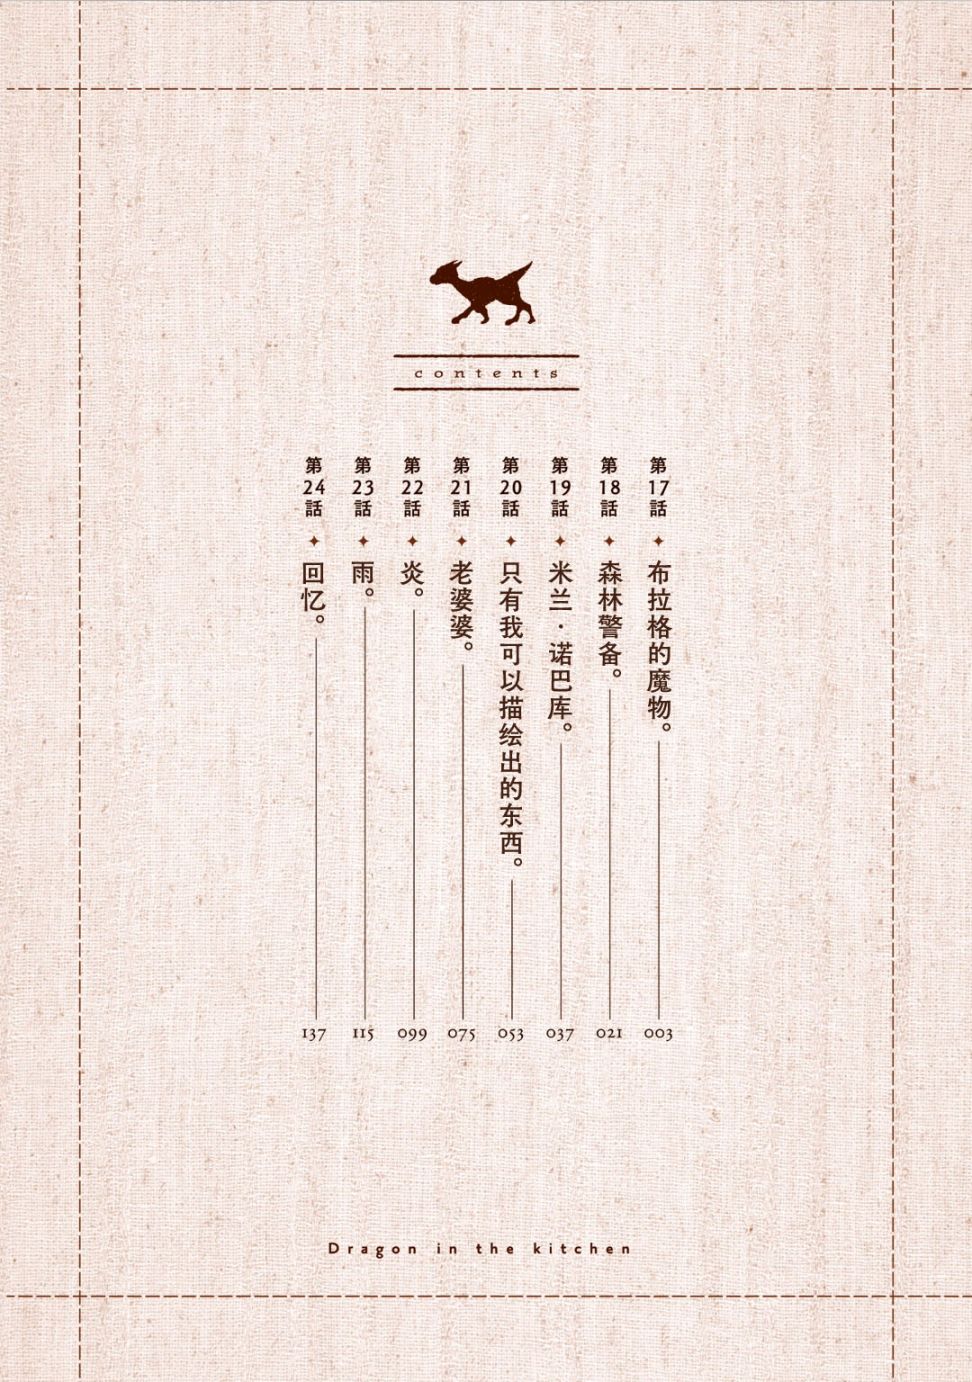 contents
第17話 ✦ 布拉格的魔物。 003
第18話 ✦ 森林警备。 021
第19話 ✦ 米兰·诺巴库。 037
第20話 ✦ 只有我可以描绘出的东西。 053
第21話 ✦ 老婆婆。 075
第22話 ✦ 炎。 099
第23話 ✦ 雨。 115
第24話 ✦ 回忆。 137
Dragon in the kitchen